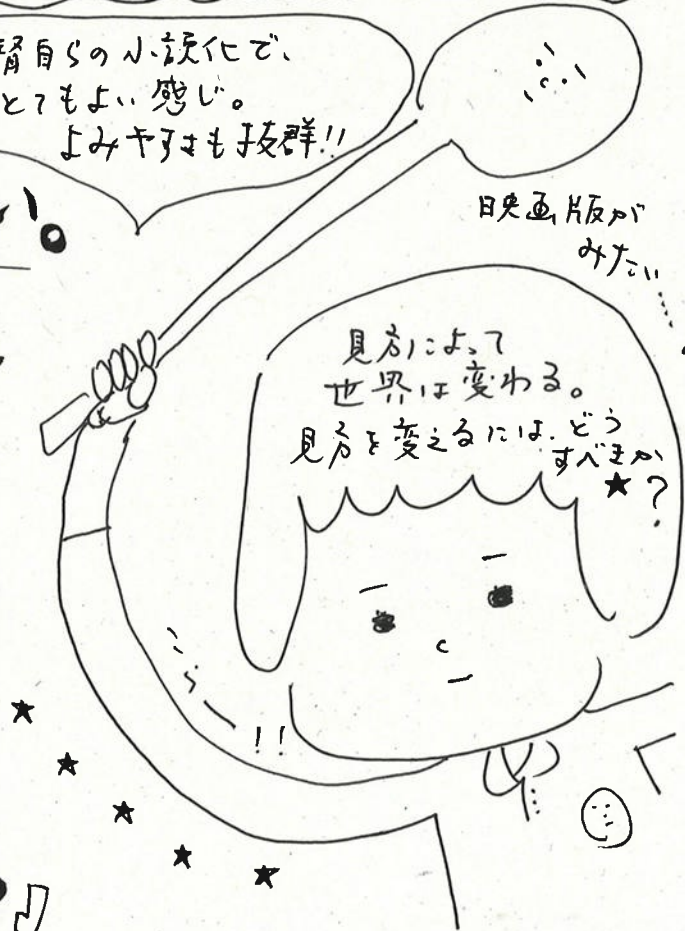 督自らの小説化で、
とてもよい感じ。
よみやすさも抜群!!
映画版が
みたい……
見方によって
世界は変わる。
見方を変えるには、どう
すべきか
★?
こら〜!!